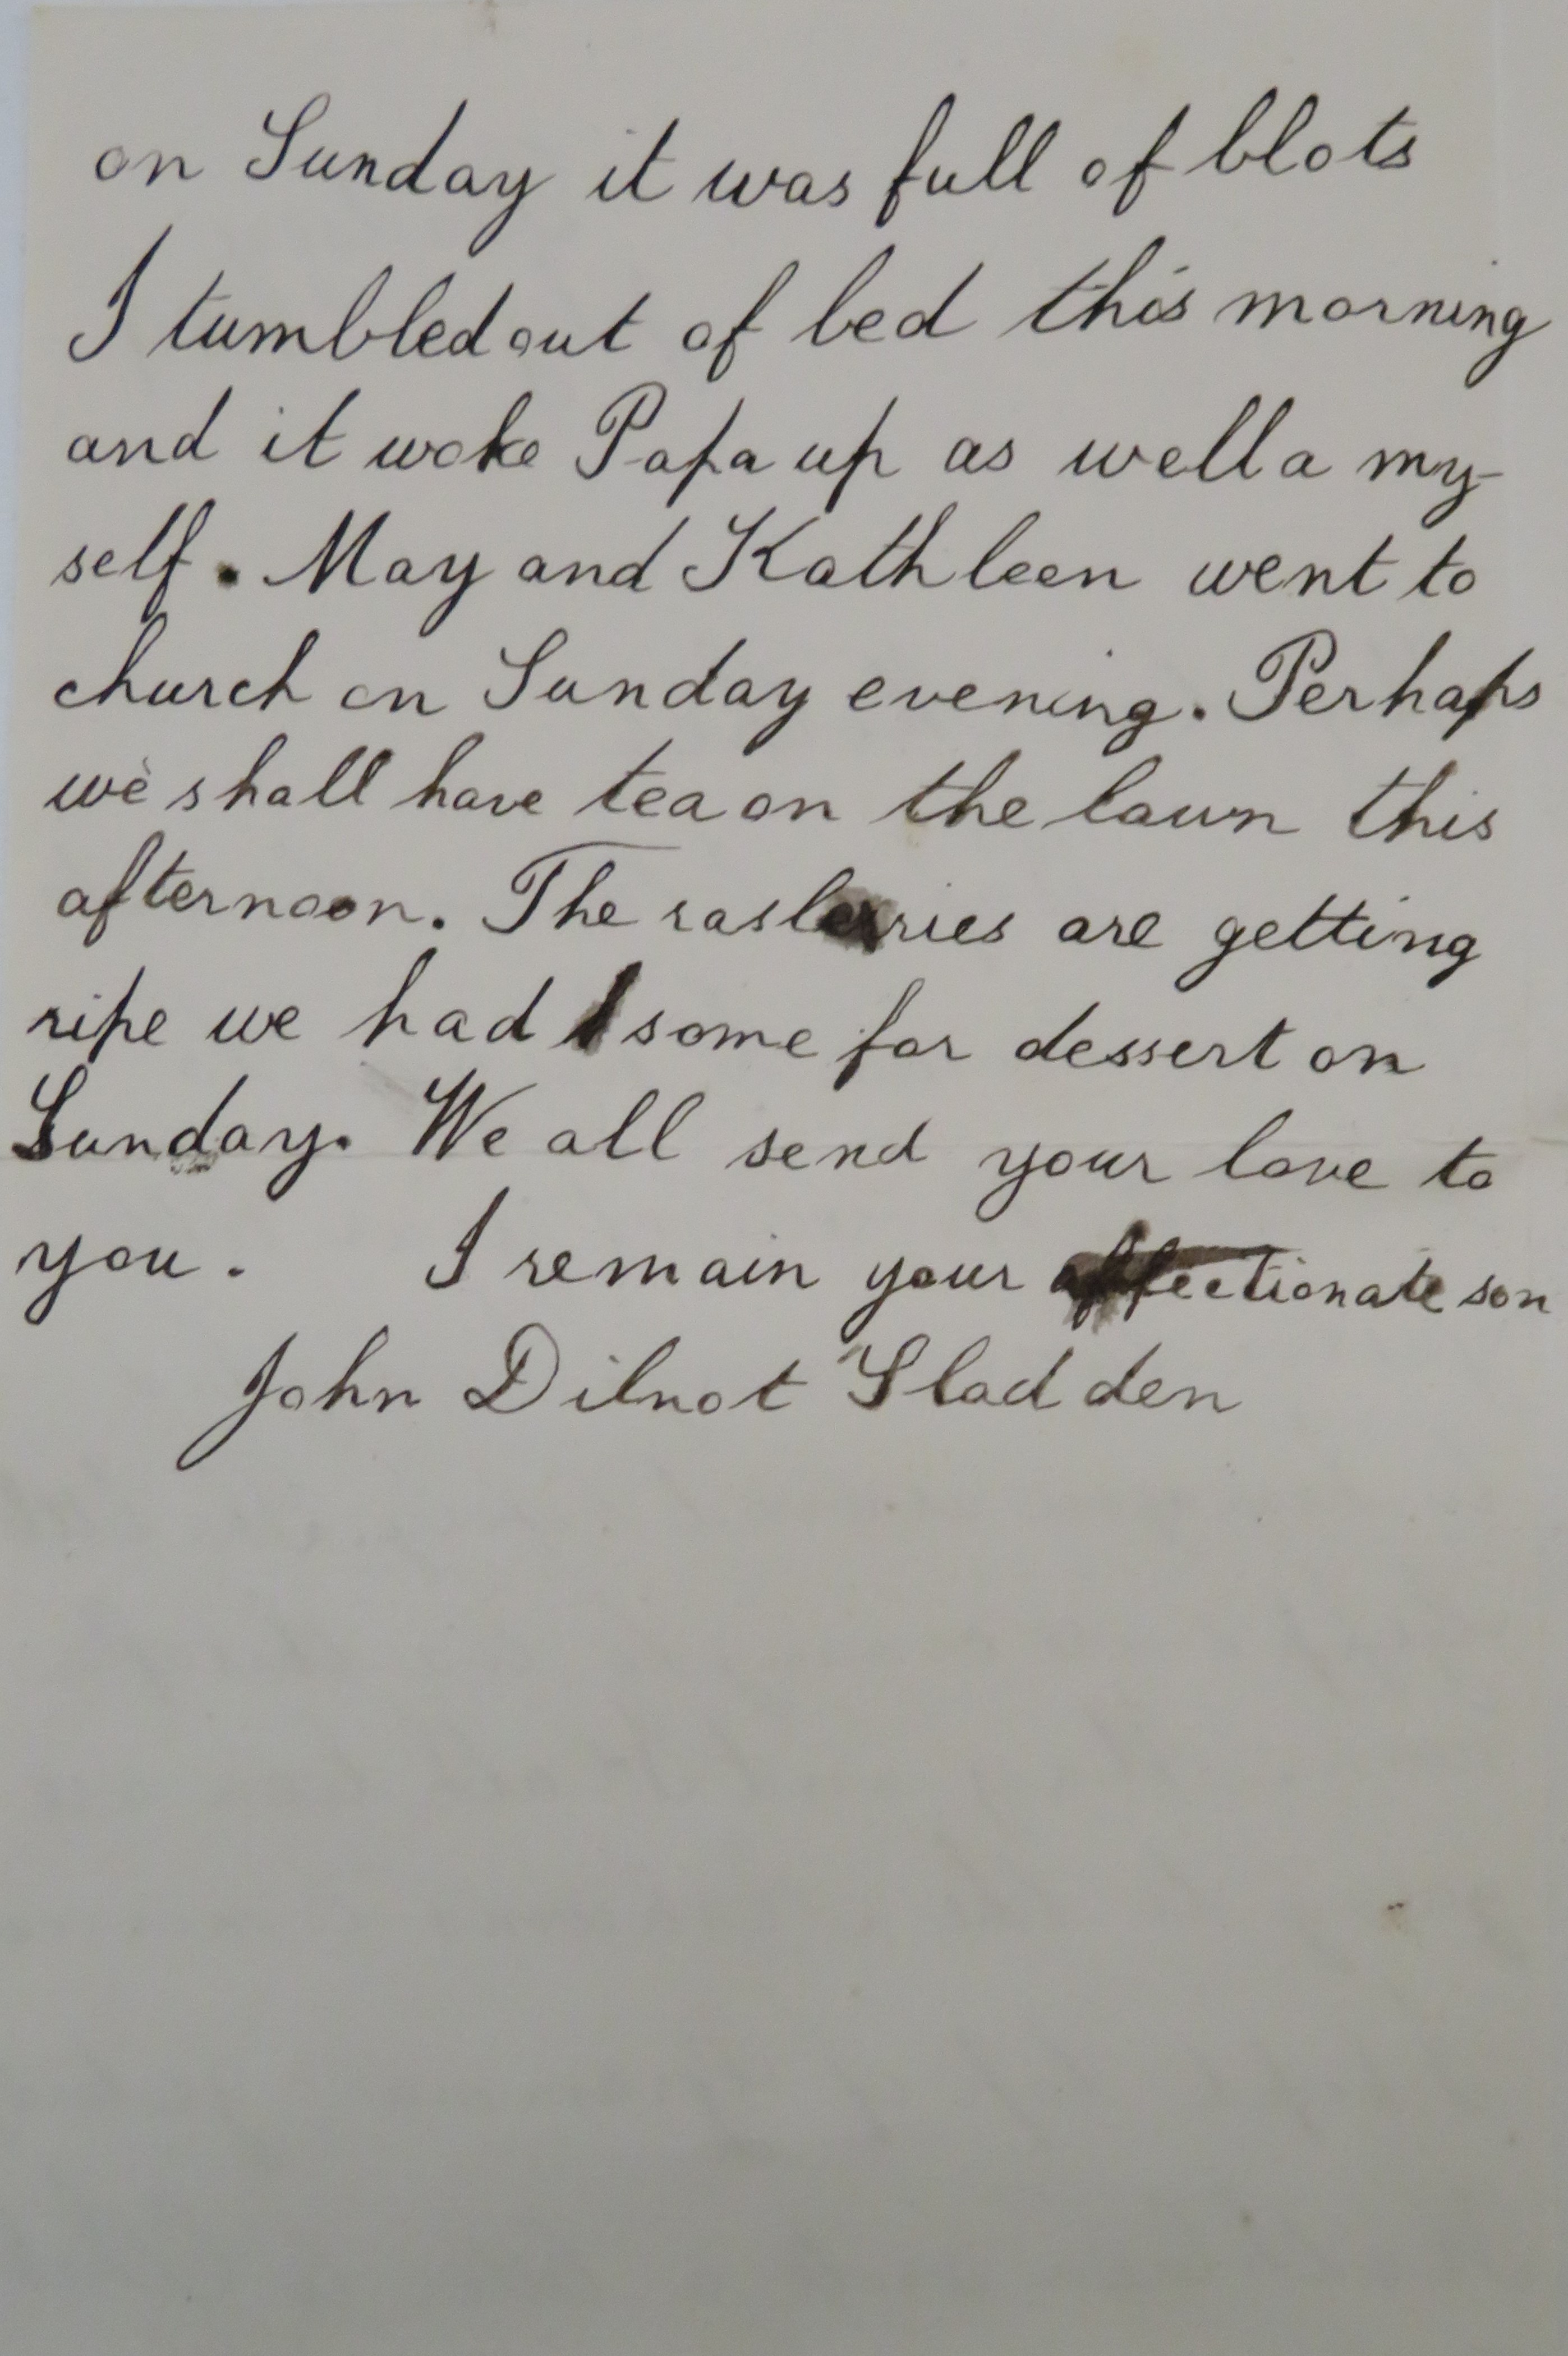 on Sunday it was full of blots
I tumbled out of bed this morning
and it woke Papa up as well a my-
self. May and Kathleen went to
church on Sunday evening. Perhaps
we shall have tea on the lawn this
afternoon. The rasberries are getting
ripe we had some for dessert on
Sunday. We all send your love to
you. I remain your affectionate son
John Dilnot Sladden